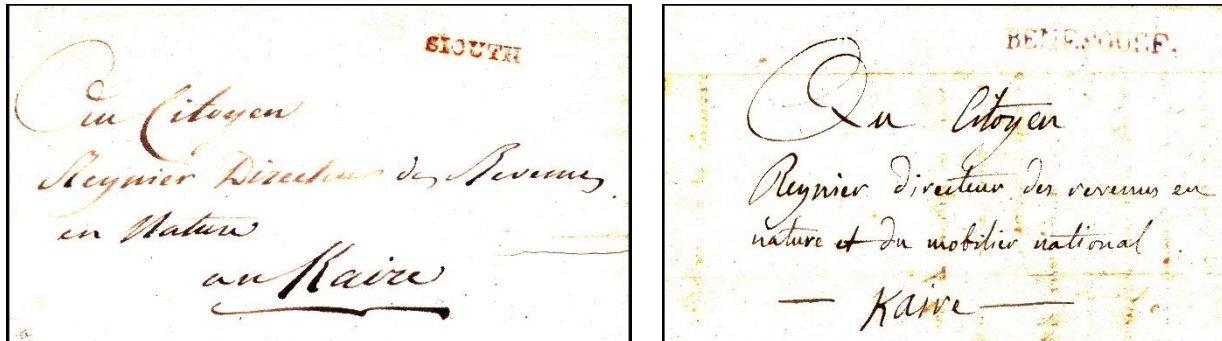 SIOUTH
Au Citoyen
Reynier Directeur des Revenus
en Nature
au Kaire
BENESOUEF.
Au Citoyen
Reynier directeur des revenus en
nature et du mobilier national
Kaire